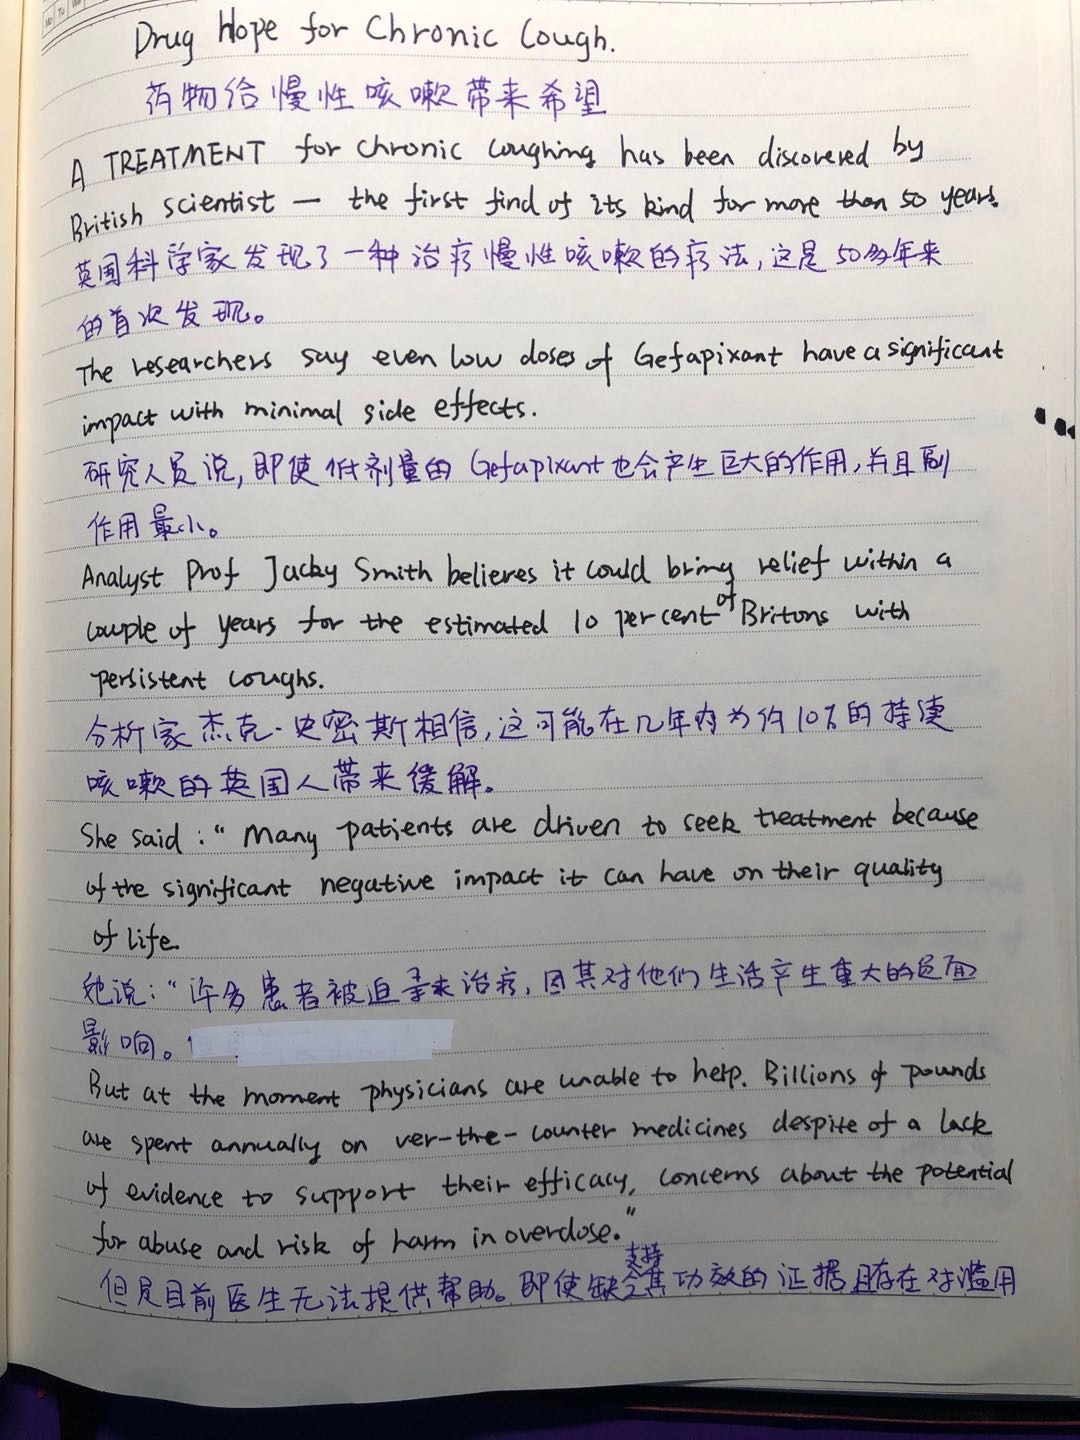 Mo Tu We
Drug Hope for Chronic Cough.
药物给慢性咳嗽带来希望
A TREATMENT for chronic coughing has been discovered by
British scientist — the first find of its kind for more than 50 years.
英国科学家发现了一种治疗慢性咳嗽的疗法,这是50多年来
的首次发现。
The researchers say even low doses of Gefapixant have a significant
impact with minimal side effects.
研究人员说,即使低剂量的Gefapixant也会产生巨大的作用,并且副
作用最小。
Analyst Prof Jacky Smith believes it could bring relief within a
couple of years for the estimated 10 per cent of Britons with
persistent coughs.
分析家杰克·史密斯相信,这可能在几年内为约10%的持续
咳嗽的英国人带来缓解。
She said : "Many patients are driven to seek treatment because
of the significant negative impact it can have on their quality
of life.
她说:"许多患者被迫寻求治疗,因其对他们生活产生重大的负面
影响。
But at the moment physicians are unable to help. Billions of pounds
are spent annually on ver-the-counter medicines despite of a lack
of evidence to support their efficacy, concerns about the potential
for abuse and risk of harm in overdose."
但是目前医生无法提供帮助。即使缺乏支持其功效的证据且存在对滥用